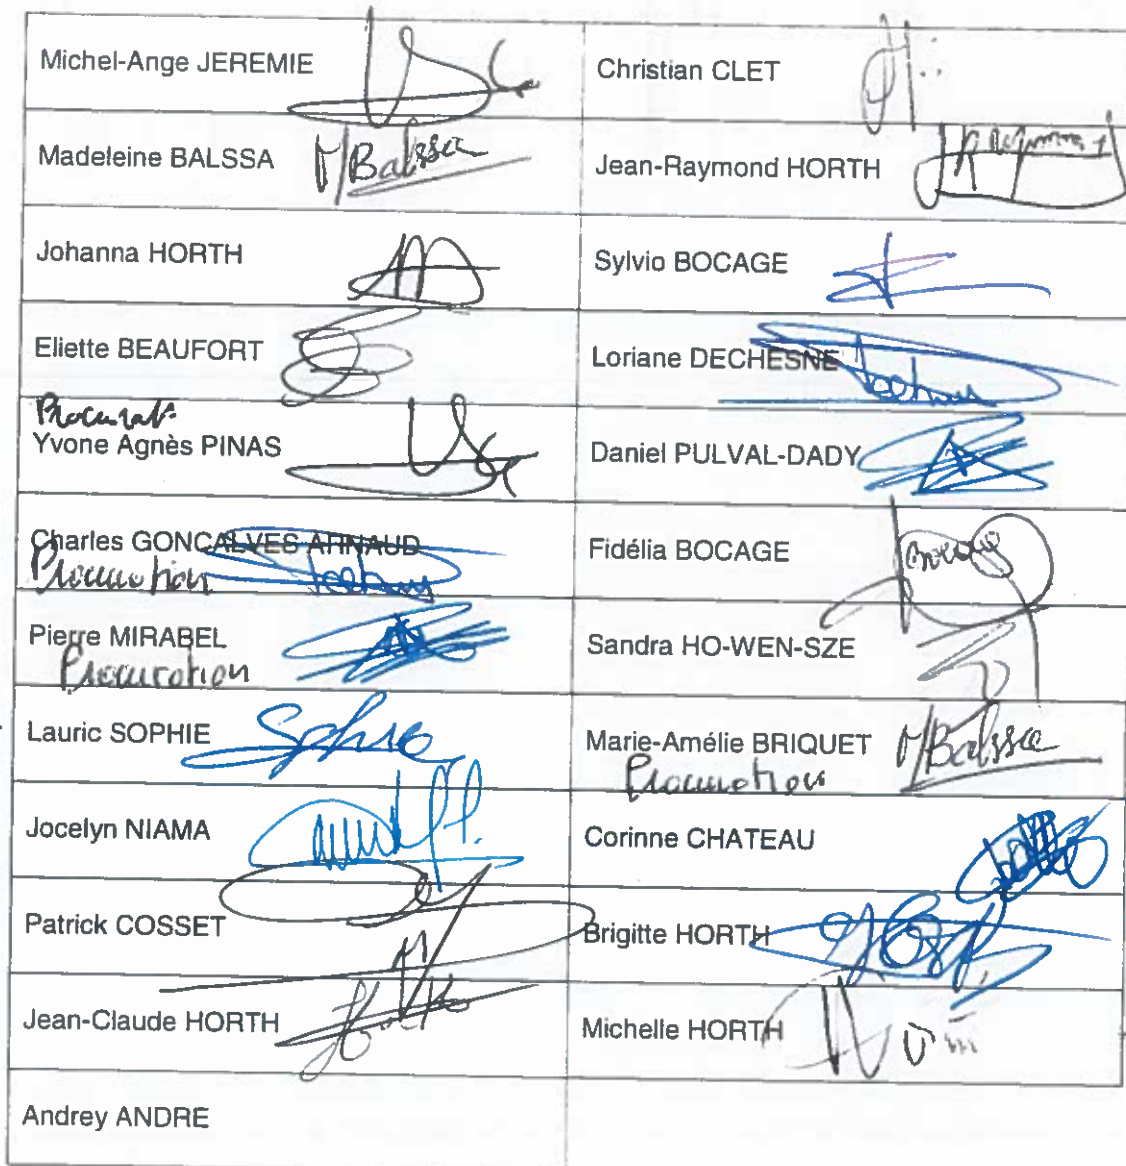 Michel-Ange JEREMIE
Christian CLET
Madeleine BALSSA
Balssa
Jean-Raymond HORTH
Johanna HORTH
Sylvio BOCAGE
Eliette BEAUFORT
Loriane DECHESNE
Yvone Agnès PINAS
Daniel PULVAL-DADY
Charles GONCALVES ARNAUD
Procuration
Fidélia BOCAGE
Pierre MIRABEL
Procuration
Sandra HO-WEN-SZE
Lauric SOPHIE
Marie-Amélie BRIQUET
Balssa
Procuration
Jocelyn NIAMA
Corinne CHATEAU
Patrick COSSET
Brigitte HORTH
Jean-Claude HORTH
Michelle HORTH
Andrey ANDRE